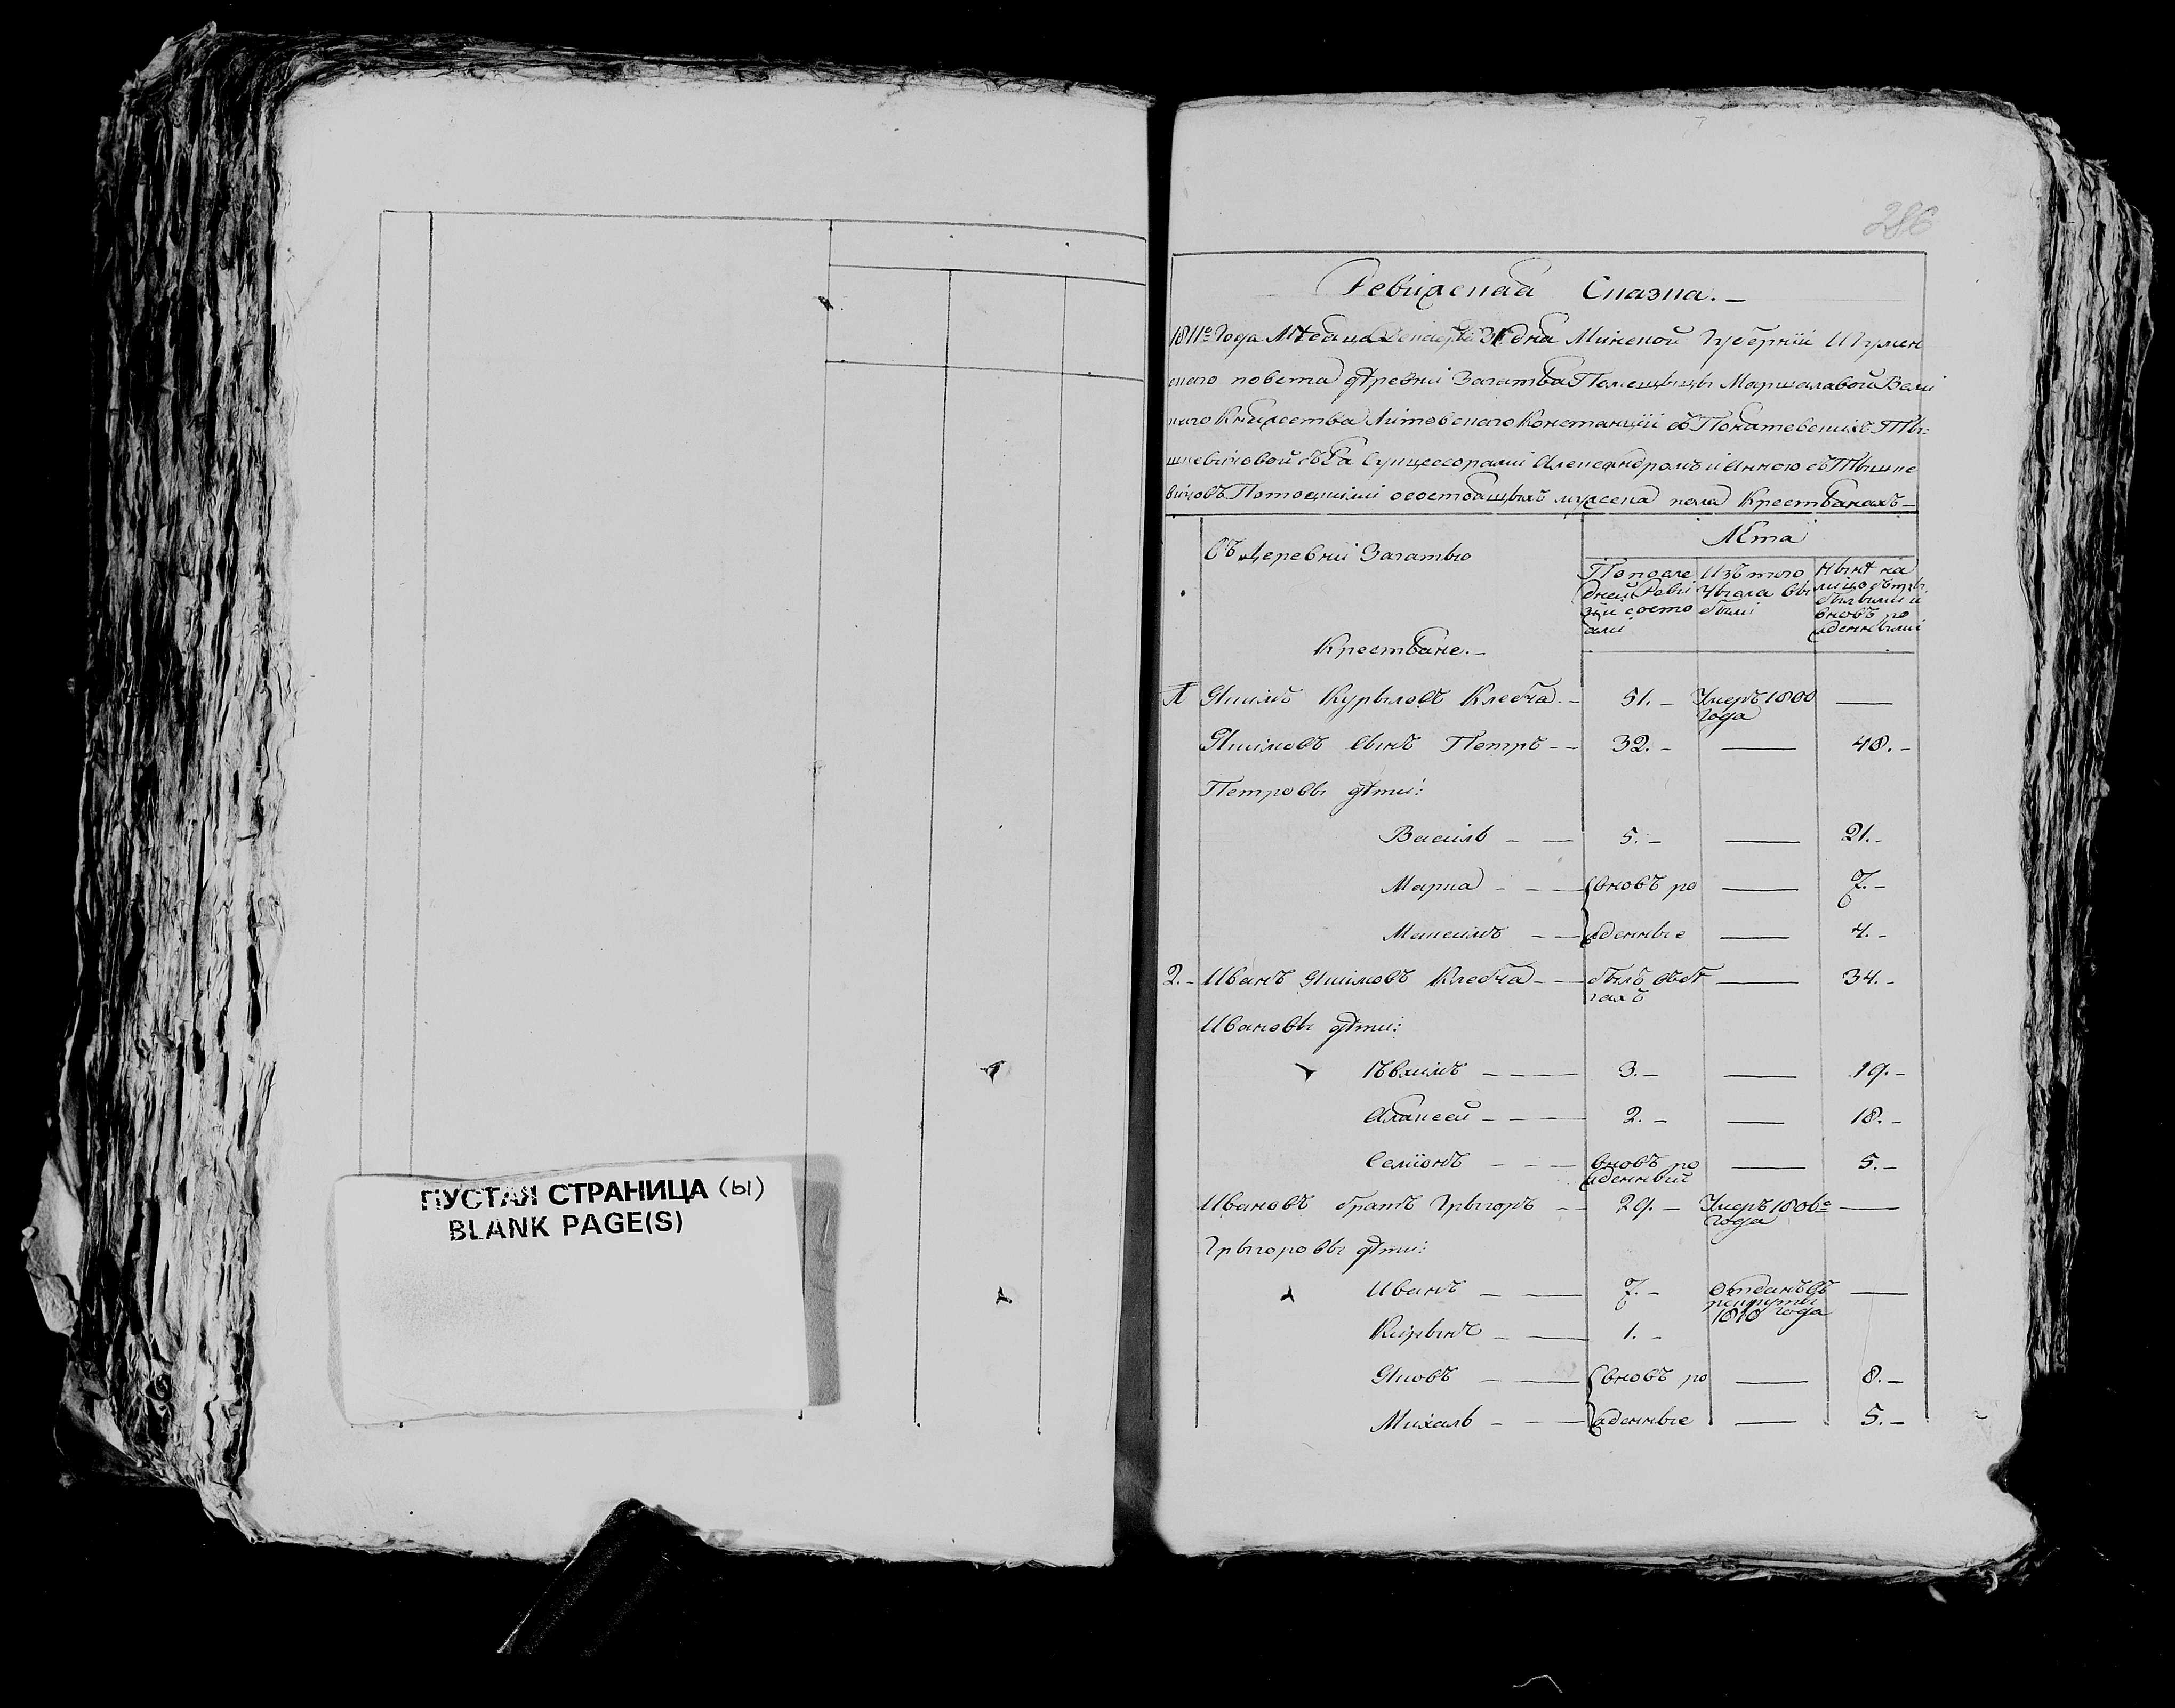 ПУСТАЯ СТРАНИЦА (ы)
BLANK PAGE(S)
286
Ревижская Сказка. —
1811го Года Мѣсяца Декабря 31 дня Минской Губерніи Игумен
скаго повета дѣревни Загатья Помещыцы Маршалавой Вели
каго Княжества Литовскаго Констанціи
шкевичовой съ Ея Сукцессорами Александромъ и Анною съ Тышке
вичовъ Потоцкими осостоящыхъ мужска пола Крестьянахъ —
Въ Деревни Загатью
Крестьяне. —
Лѣта
По после Изъ того Нынѣ на
дней Реви Чысла вы лицо
зіи состо были
яли вновь ро
жденными
1 Якимъ Курыловъ Клебча — 51. — Умеръ 1800 —
года
Якимовъ сынъ Петръ — — 32. — — 48. —
Петровы дѣти:
Василь — — 5. — — 21. —
Марка — — вновь ро — 7. —
Максимъ — — жденные — 4. —
2. — Иванъ Якимовъ Клебча — — былъ въ бѣ — 34. —
гахъ
Ивановы дѣти:
— — 3. — — 19. —
Алексей — — 2. — — 18. —
Семіонъ — — вновь ро — 5. —
жденный
Ивановъ братъ Грыгоръ — — 29. — Умеръ 1806го —
года
Грыгоровы дѣти:
Иванъ — — 7. — Отданъ въ —
рекруты
1810 года
— — 1. —
Яковъ — — вновь ро — 8. —
Михаль — — жденные — 5. —